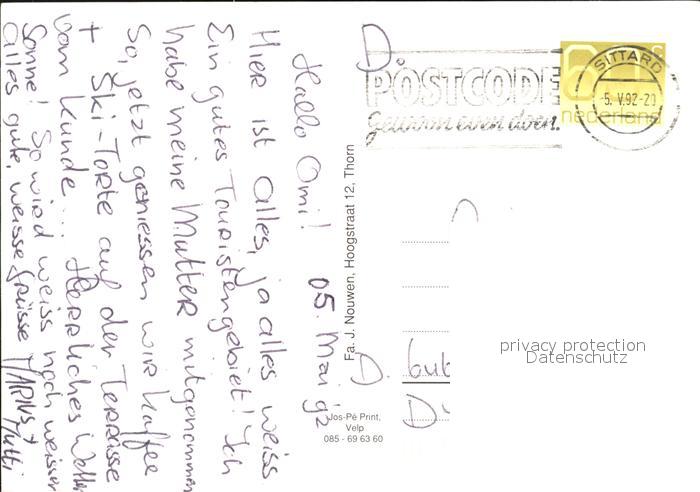 Hallo Omi! 05. Mai 92
Hier ist alles, ja alles weiss
Ein gutes Touristengebiet! Ich
habe meine Mutter mitgenommen
So, jetzt geniessen wir Kaffee
+ Ski-Torte auf der Terrasse
vom Kunde... Herrliches Wetter
Sonne! So wird weiss noch weisser
Alles gute, weisse Grüsse
+ Mutti
Fa. J. Nouwen, Hoogstraat 12, Thorn
Jos-Pé Print,
Velp
085 - 69 63 60
POSTCODE
gewoon even doen.
SITTARD
-5. V.92-20
nederland
D.
D.
privacy protection
Datenschutz